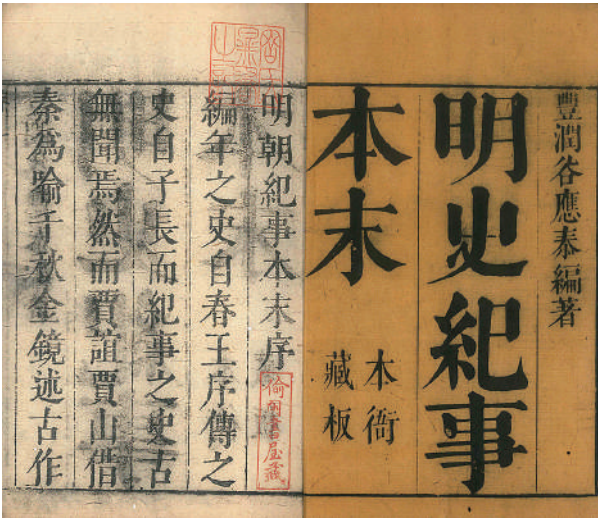 豐潤谷應泰編著
明史紀事
本末
本衙
藏板
明朝紀事本末序
編年之史自春王序傳之
史自子長而紀事之史古
無聞焉然而賈誼賈山借
秦為喻千秋金鏡述古作